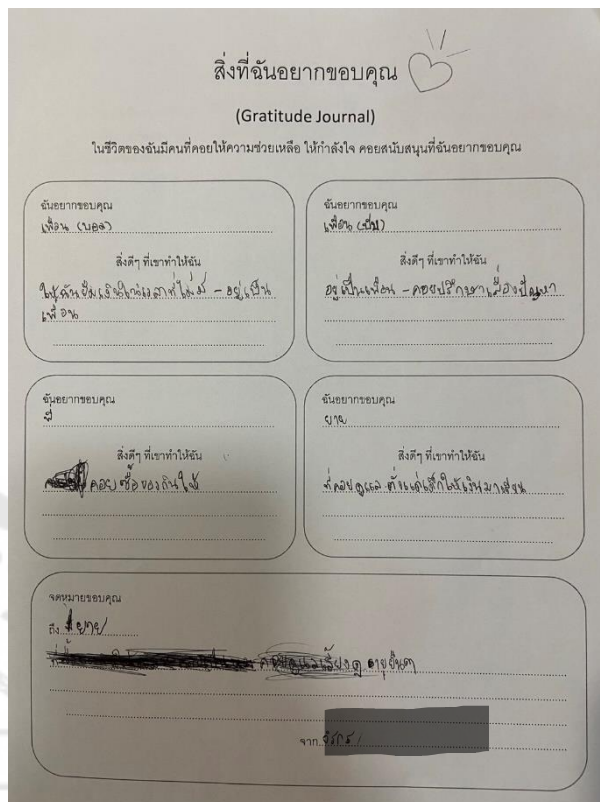 สิ่งที่ฉันอยากขอบคุณ
(Gratitude Journal)
ในชีวิตของฉันมีคนที่คอยให้ความช่วยเหลือ ให้กำลังใจ คอยสนับสนุนที่ฉันอยากขอบคุณ
ฉันอยากขอบคุณ
เพื่อน (บอส)
สิ่งดีๆ ที่เขาทำให้ฉัน
ให้ฉันยืมเงินในเวลาที่ไม่มี - อยู่เป็น
เพื่อน
ฉันอยากขอบคุณ
เพื่อน
สิ่งดีๆ ที่เขาทำให้ฉัน
อยู่เป็นเพื่อน - คอยปรึกษาเรื่องปัญหา
ฉันอยากขอบคุณ
พี่
สิ่งดีๆ ที่เขาทำให้ฉัน
คอยซื้อของกินให้
ฉันอยากขอบคุณ
ยาย
สิ่งดีๆ ที่เขาทำให้ฉัน
ที่คอยดูแลตั้งแต่เด็กให้เงินมาเรียน
จดหมายขอบคุณ
ถึง ยาย
อายุยืนๆ
จาก